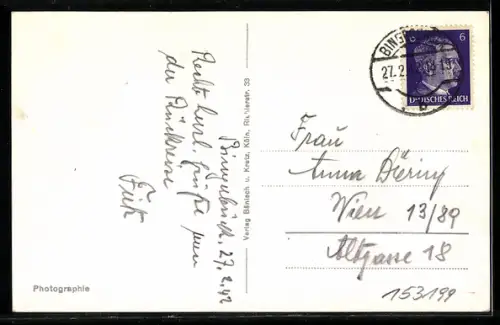 Bingerbrück, 27.2.42
Recht herzl. Grüße von
der Rückreise
Fritz
Photographie
Verlag Bönisch u. Kretz, Köln, Richterstr. 33
BINGE
27.2.
b
6
DEUTSCHES REICH
Frau
Anna Döring
Wien 13/89
Altgasse 18
153199